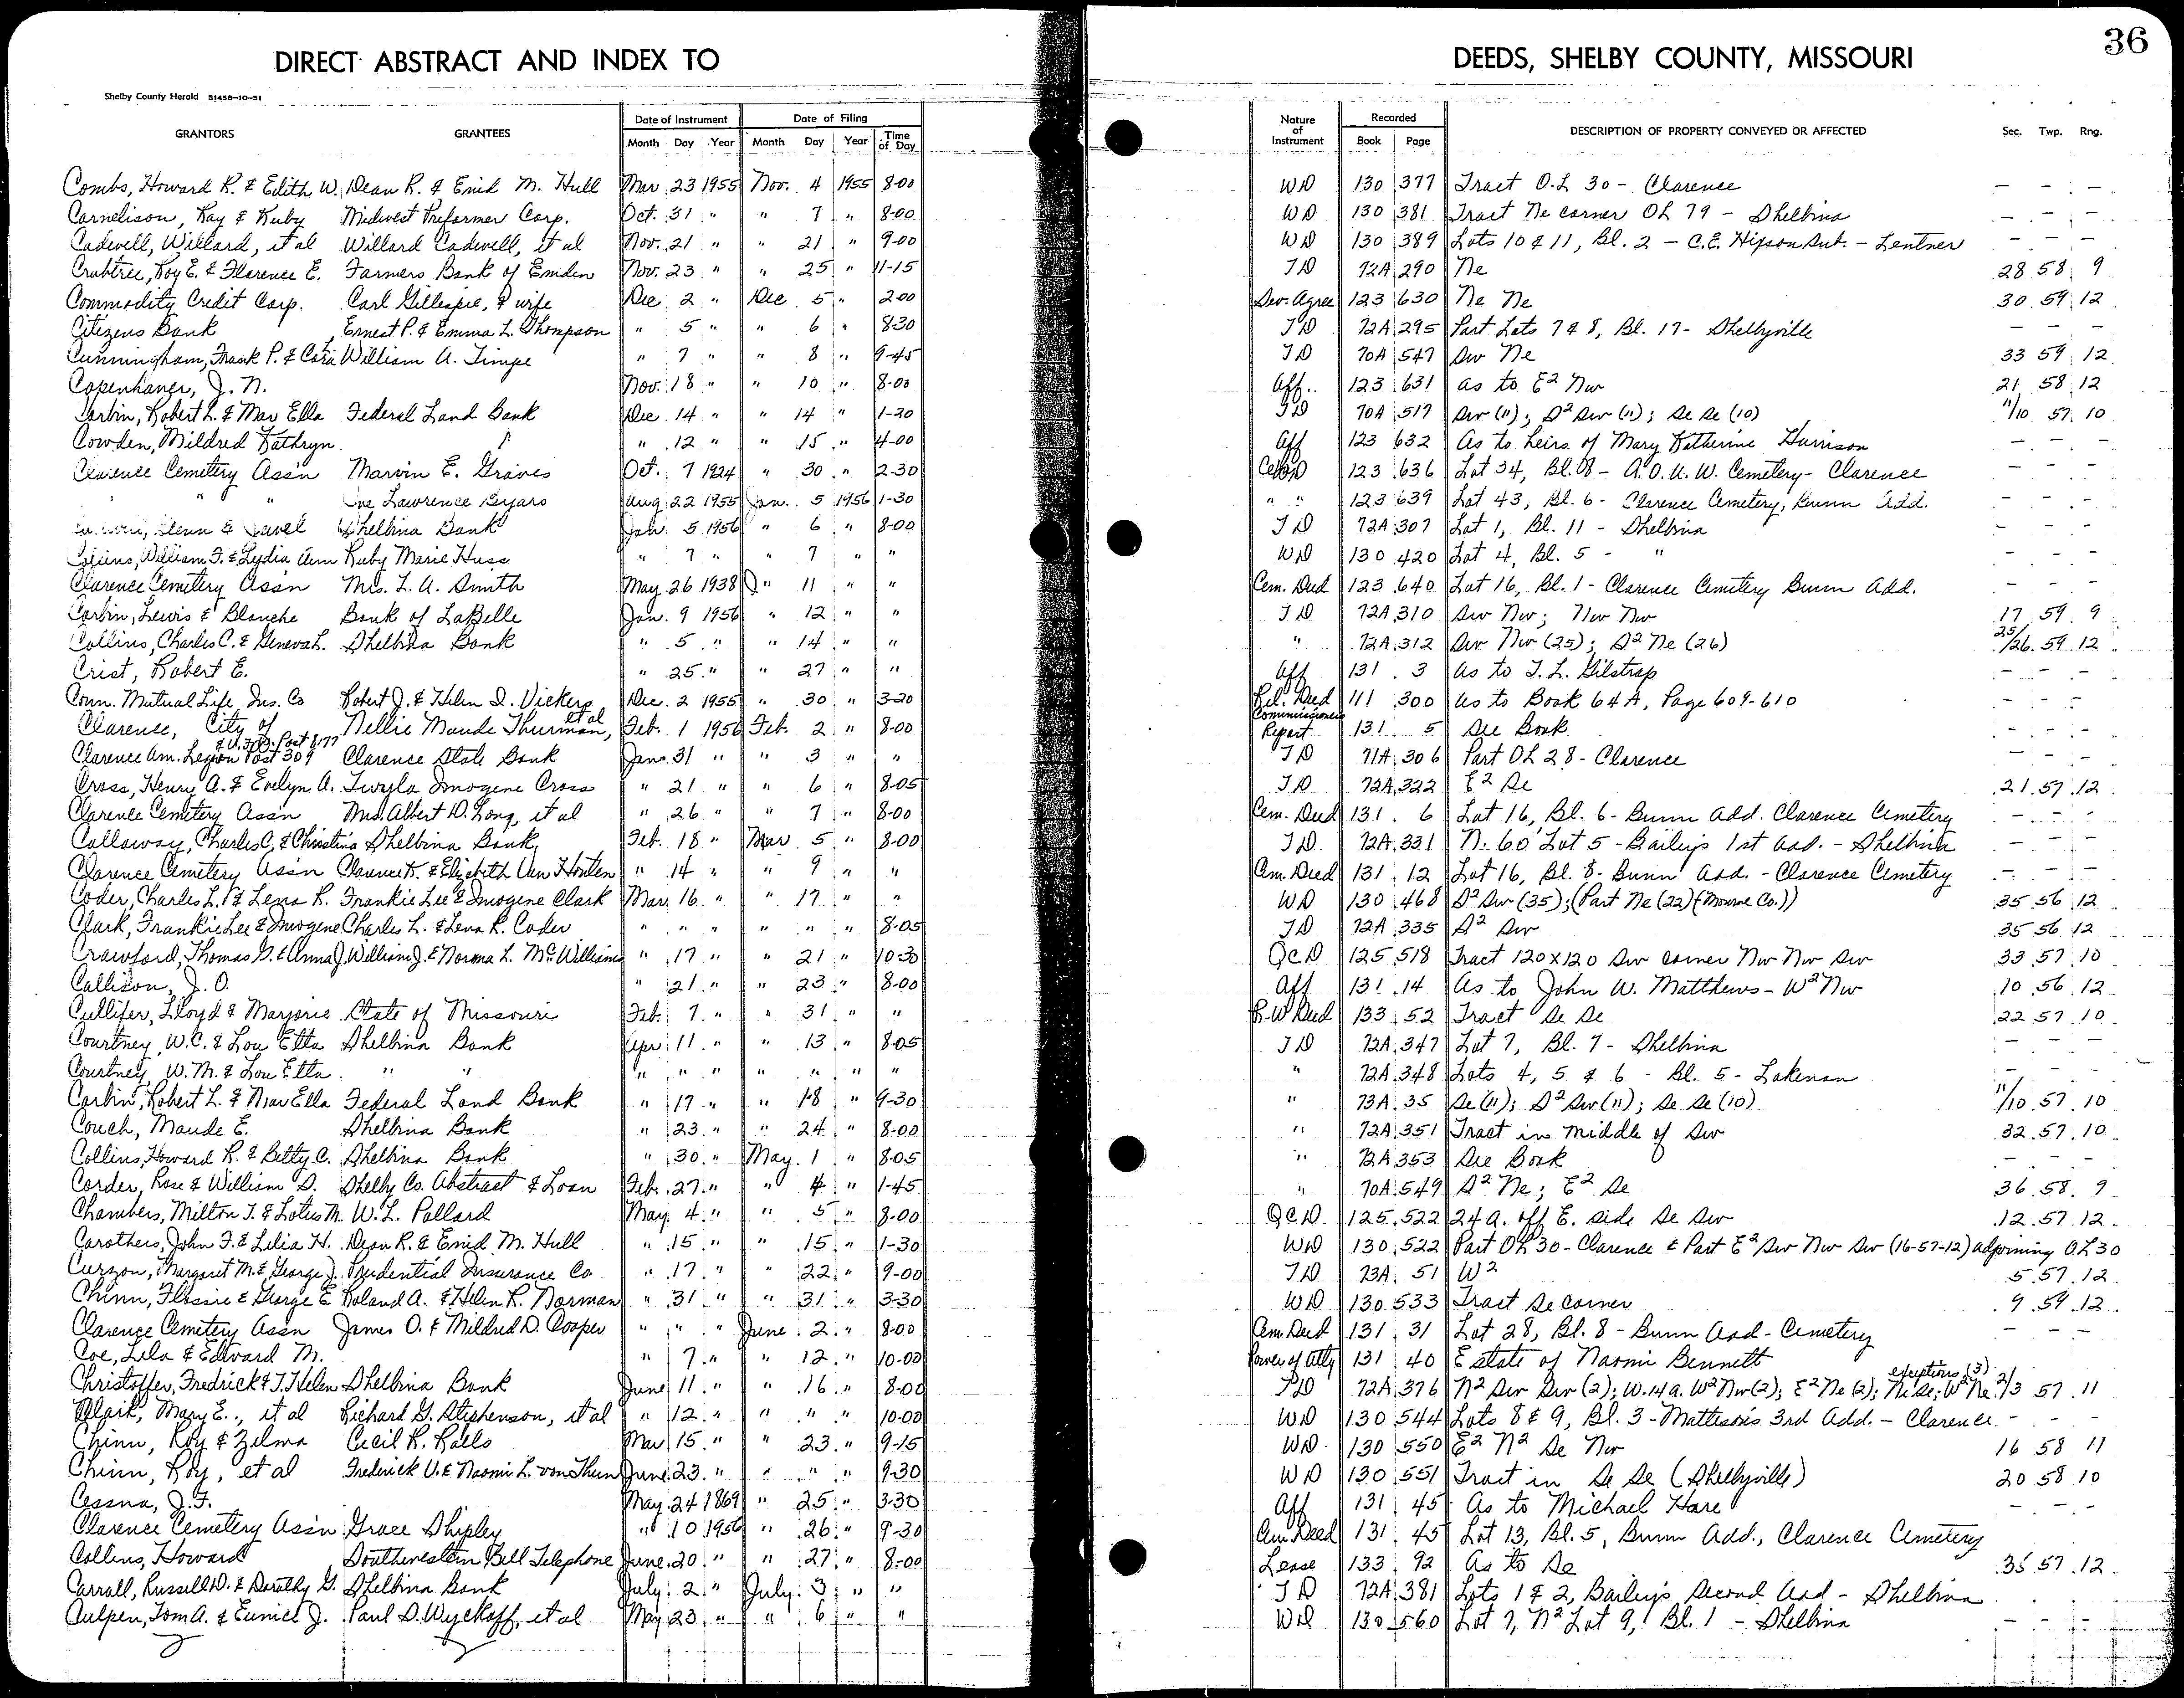 36
DIRECT ABSTRACT AND INDEX TO DEEDS, SHELBY COUNTY, MISSOURI
Shelby County Herald 51458-10-51
GRANTORS GRANTEES Date of Instrument Month Day Year Date of Filing Month Day Year Time of Day Nature of Instrument Recorded Book Page DESCRIPTION OF PROPERTY CONVEYED OR AFFECTED Sec. Twp. Rng.
Combs, Howard R. & Edith W. Dean R. & Enid M. Hull Mar 23 1955 Nov. 4 1955 8-00 WD 130 377 Tract O.L 30 - Clarence - - -
Cornelison, Ray & Ruby Midwest Preformer Corp. Oct. 31 " " 7 " 8-00 WD 130 381 Tract Ne corner OL 79 - Shelbina - - -
Cadwell, Willard, et al Willard Cadwell, et al Nov. 21 " " 21 " 9-00 WD 130 389 Lots 10 & 11, Bl. 2 - C.E. Hixson Sub. - Lentner - - -
Crabtree, Roy E. & Florence E. Farmers Bank of Emden Nov. 23 " " 25 " 11-15 TD 72A 290 Ne 28 58 9
Commodity Credit Corp. Carl Gillespie, & wife Dec 2 " Dec 5 " 2-00 Sev. Agree 123 630 Ne Ne 30 59 12
Citizens Bank Ernest P. & Emma L. Thompson " 5 " " 6 " 8-30 TD 72A 295 Part Lots 7 & 8, Bl. 17 - Shelbyville - - -
Cunningham, Frank P. & Cora L. William A. Timpe " 7 " " 8 " 9-45 TD 70A 547 Sw Ne 33 59 12
Copenhaver, J. N. Nov. 18 " " 10 " 8-00 Aff. 123 631 as to E² Nw 21 58 12
Corbin, Robert L. & Mav Ella Federal Land Bank Dec 14 " " 14 " 1-20 TD 70A 517 Sw (11); S² Sw (11); Se Se (10) 11/10 57 10
Cowden, Mildred Kathryn " 12 " " 15 " 4-00 Aff 123 632 As to heirs of Mary Katherine Harrison - - -
Clarence Cemetery Ass'n Marvin E. Graves Oct. 7 1924 " 30 " 2-30 123 636 Lot 34, Bl. 8 - A.O.U.W. Cemetery - Clarence - - -
" " " Lawrence Byars Aug 22 1955 Jan. 5 1956 1-30 " " 123 639 Lot 43, Bl. 6 - Clarence Cemetery, Bunn Add. - - -
Glenn & Jewel Shelbina Bank Jan. 5 1956 " 6 " 8-00 TD 72A 307 Lot 1, Bl. 11 - Shelbina - - -
Collins, William F. & Lydia Ann Ruby Marie Huss " 7 " " 7 " " WD 130 420 Lot 4, Bl. 5 - " - - -
Clarence Cemetery Ass'n Mrs. L. A. Smith May 26 1938 " 11 " " Cem. Deed 123 640 Lot 16, Bl. 1 - Clarence Cemetery Bunn Add. - - -
Corbin, Lewis & Blanche Bank of LaBelle Jan. 9 1956 " 12 " " TD 72A 310 Sw Nw; Nw Nw 17 59 9
Collins, Charles C. & Geneva L. Shelbina Bank " 5 " " 14 " " " 72A 312 Sw Nw (25); S² Ne (26) 25/26 59 12
Crist, Robert E. " 25 " " 27 " " Aff 131 3 As to T. L. Gilstrap - - -
Conn. Mutual Life Ins. Co Robert J. & Helen I. Vickers Dec. 2 1955 " 30 " 3-20 Rel. Deed 111 300 As to Book 64A, Page 609-610 - - -
Clarence, City of Nellie Maude Thurman, et al Feb. 1 1956 Feb. 2 " 8-00 Commissioners Report 131 5 See Book - - -
Clarence Am. Legion Post 309 & V.F.W. Post 8177 Clarence State Bank Jan. 31 " " 3 " " TD 71A 306 Part OL 28 - Clarence - - -
Cross, Henry A. & Evelyn A. Twyla Imogene Cross " 21 " " 6 " 8-05 TD 72A 322 E² Se 21 57 12
Clarence Cemetery Ass'n Mrs. Albert D. Long, et al " 26 " " 7 " 8-00 Cem. Deed 131 6 Lot 16, Bl. 6 - Bunn Add. Clarence Cemetery - - -
Callaway, Charles C. & Christina Shelbina Bank Feb. 18 " Mar 5 " 8-00 TD 72A 331 N. 60' Lot 5 - Bailey's 1st Add. - Shelbina - - -
Clarence Cemetery Ass'n Clarence K. & Elizabeth Van Houten " 14 " " 9 " " Cem. Deed 131 12 Lot 16, Bl. 8 - Bunn Add. - Clarence Cemetery - - -
Coder, Charles L. & Lena R. Frankie Lee & Imogene Clark Mar. 16 " " 17 " " WD 130 468 S² Sw (35); (Part Ne (22) (Monroe Co.)) 35 56 12
Clark, Frankie Lee & Imogene Charles L. & Lena R. Coder " " " " " " 8-05 TD 72A 335 S² Sw 35 56 12
Crawford, Thomas G. & Anna J. William J. & Norma L. McWilliams " 17 " " 21 " 10-30 QCD 125 518 Tract 120x120 Sw corner Nw Nw Sw 33 57 10
Callison, J. O. " 21 " " 23 " 8-00 Aff 131 14 As to John W. Matthews - W² Nw 10 56 12
Cullifer, Lloyd & Marjorie State of Missouri Feb. 7 " " 31 " " R-W Deed 133 52 Tract Se Se 22 57 10
Courtney, W.C. & Lou Etta Shelbina Bank Apr 11 " " 13 " 8-05 TD 72A 347 Lot 7, Bl. 7 - Shelbina - - -
Courtney, W. M. & Lou Etta " " " " " " " " " " 72A 348 Lots 4, 5 & 6 - Bl. 5 - Lakenan - - -
Corbin, Robert L. & Mav Ella Federal Land Bank " 17 " " 18 " 9-30 " 73A 35 Se (11); S² Sw (11); Se Se (10) 11/10 57 10
Couch, Maude E. Shelbina Bank " 23 " " 24 " 8-00 " 72A 351 Tract in middle of Sw 32 57 10
Collins, Howard R. & Betty C. Shelbina Bank " 30 " May 1 " 8-05 " 72A 353 See Book - - -
Corder, Rose & William D. Shelby Co. Abstract & Loan Feb. 27 " " 4 " 1-45 " 70A 549 S² Ne; E² Se 36 58 9
Chambers, Milton T. & Lotus M. W. L. Pollard May 4 " " 5 " 8-00 QCD 125 522 24 a. off E. side Se Sw 12 57 12
Carothers, John F. & Lilia H. Dean R. & Enid M. Hull " 15 " " 15 " 1-30 WD 130 522 Part OL 30 - Clarence & Part E² Sw Nw Sw (16-57-12) adjoining OL 30
Curzon, Margaret M. & George J. Prudential Insurance Co " 17 " " 22 " 9-00 TD 73A 51 W² 5 57 12
Chinn, Flossie & George E Roland A. & Helen R. Norman " 31 " " 31 " 3-30 WD 130 533 Tract Se corner 9 59 12
Clarence Cemetery Assn James O. & Mildred D. Cooper " " " June 2 " 8-00 Cem. Deed 131 31 Lot 28, Bl. 8 - Bunn Add - Cemetery - -
Coe, Lela & Edward M. " 7 " " 12 " 10-00 Power of Atty 131 40 Estate of Naomi Bennett
Christoffer, Fredrick & T. Helen Shelbina Bank June 11 " " 16 " 8-00 TD 72A 376 N² Sw Sw (2); W. 14 a. W² Nw (2); E² Ne (2); Ne Se; W² Ne exceptions (3) 2/3 57 11
Clark, Mary E., et al Richard G. Stephenson, et al " 12 " " " " 10-00 WD 130 544 Lots 8 & 9, Bl. 3 - Mattison's 3rd Add. - Clarence - - -
Chinn, Roy & Zelma Cecil R. Ralls Mar. 15 " " 23 " 9-15 WD 130 550 E² N² Se Nw 16 58 11
Chinn, Roy, et al Frederick U. & Naomi L. von Thun June 23 " " " " 9-30 WD 130 551 Tract in Se Se (Shelbyville) 20 58 10
Cessna, J. F. May 24 1869 " 25 " 3-30 Aff 131 45 As to Michael Hare - - -
Clarence Cemetery Ass'n Grace Shipley " 10 1956 " 26 " 9-30 Cem. Deed 131 45 Lot 13, Bl. 5, Bunn Add., Clarence Cemetery
Collins, Howard Southwestern Bell Telephone June 20 " " 27 " 8-00 Lease 133 92 As to Se 35 57 12
Carrall, Russell D. & Dorothy G. Shelbina Bank July 2 " July 3 " " TD 72A 381 Lots 1 & 2, Bailey's Second Add - Shelbina
Culpen, Tom A. & Eunice J. Paul D. Wyckoff, et al May 23 " " 6 " " WD 130 560 Lot 7, N² Lot 9, Bl. 1 - Shelbina